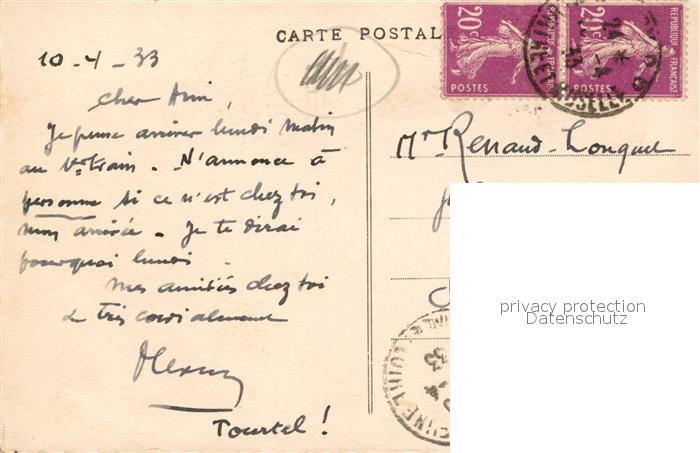 CARTE POSTAL
10-4-33
cher Ami,
Je pense arriver lundi matin
au train. N'annonce à
personne si ce n'est chez toi,
mon arrivée. Je te dirai
pourquoi lundi
mes amitiés chez toi
& très cordialement
Tourtel !
20c 20c
POSTES POSTES
REPUBLIQUE FRANÇAISE
Mr Renaud-Longuet
privacy protection
Datenschutz